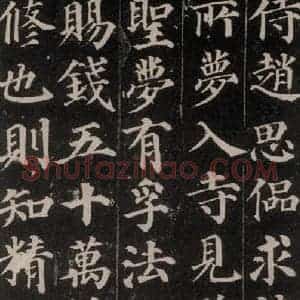 侍趙思偘求諸
所夢入寺見
聖夢有孚法
賜錢五十萬
修也則知精
Shufaziliao.com